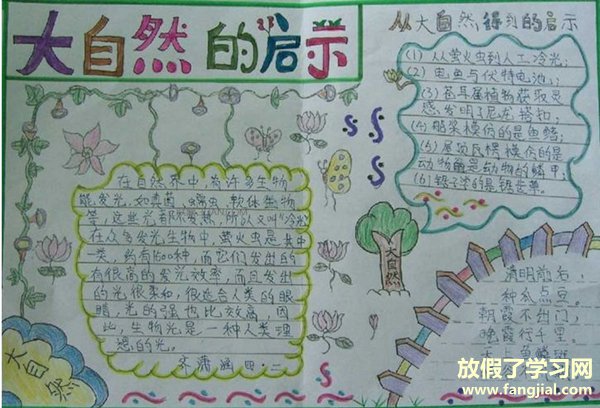 大自然的启示
从大自然得到的启示
(1) 从萤火虫到人工冷光;
(2) 电鱼与伏特电池;
(3) 苍耳属植物获取灵
感发明了尼龙搭扣;
(4) 船桨模仿的是鱼鳍;
(5) 屋顶瓦楞模仿的是
动物的鳞甲
(6) 锯子学的是
在自然界中,有许多生物
能发光,如细菌、蠕虫、软体生物
等,这些光都不发热,所以又叫“冷光”
在众多发光生物中,萤火虫是其中
一类,约有1500种,而它们发出的
有很高的发光效率,而且发出
的光很柔和,很适合人类的眼
睛,光的强也比较高,因
此,生物光是一种人类理
想的光。
齐潇涵 四·二
大自然
大自然
清明前后,
种瓜点豆。
朝霞不出门,
晚霞行千里。
放假了学习网
www.fangjial.com